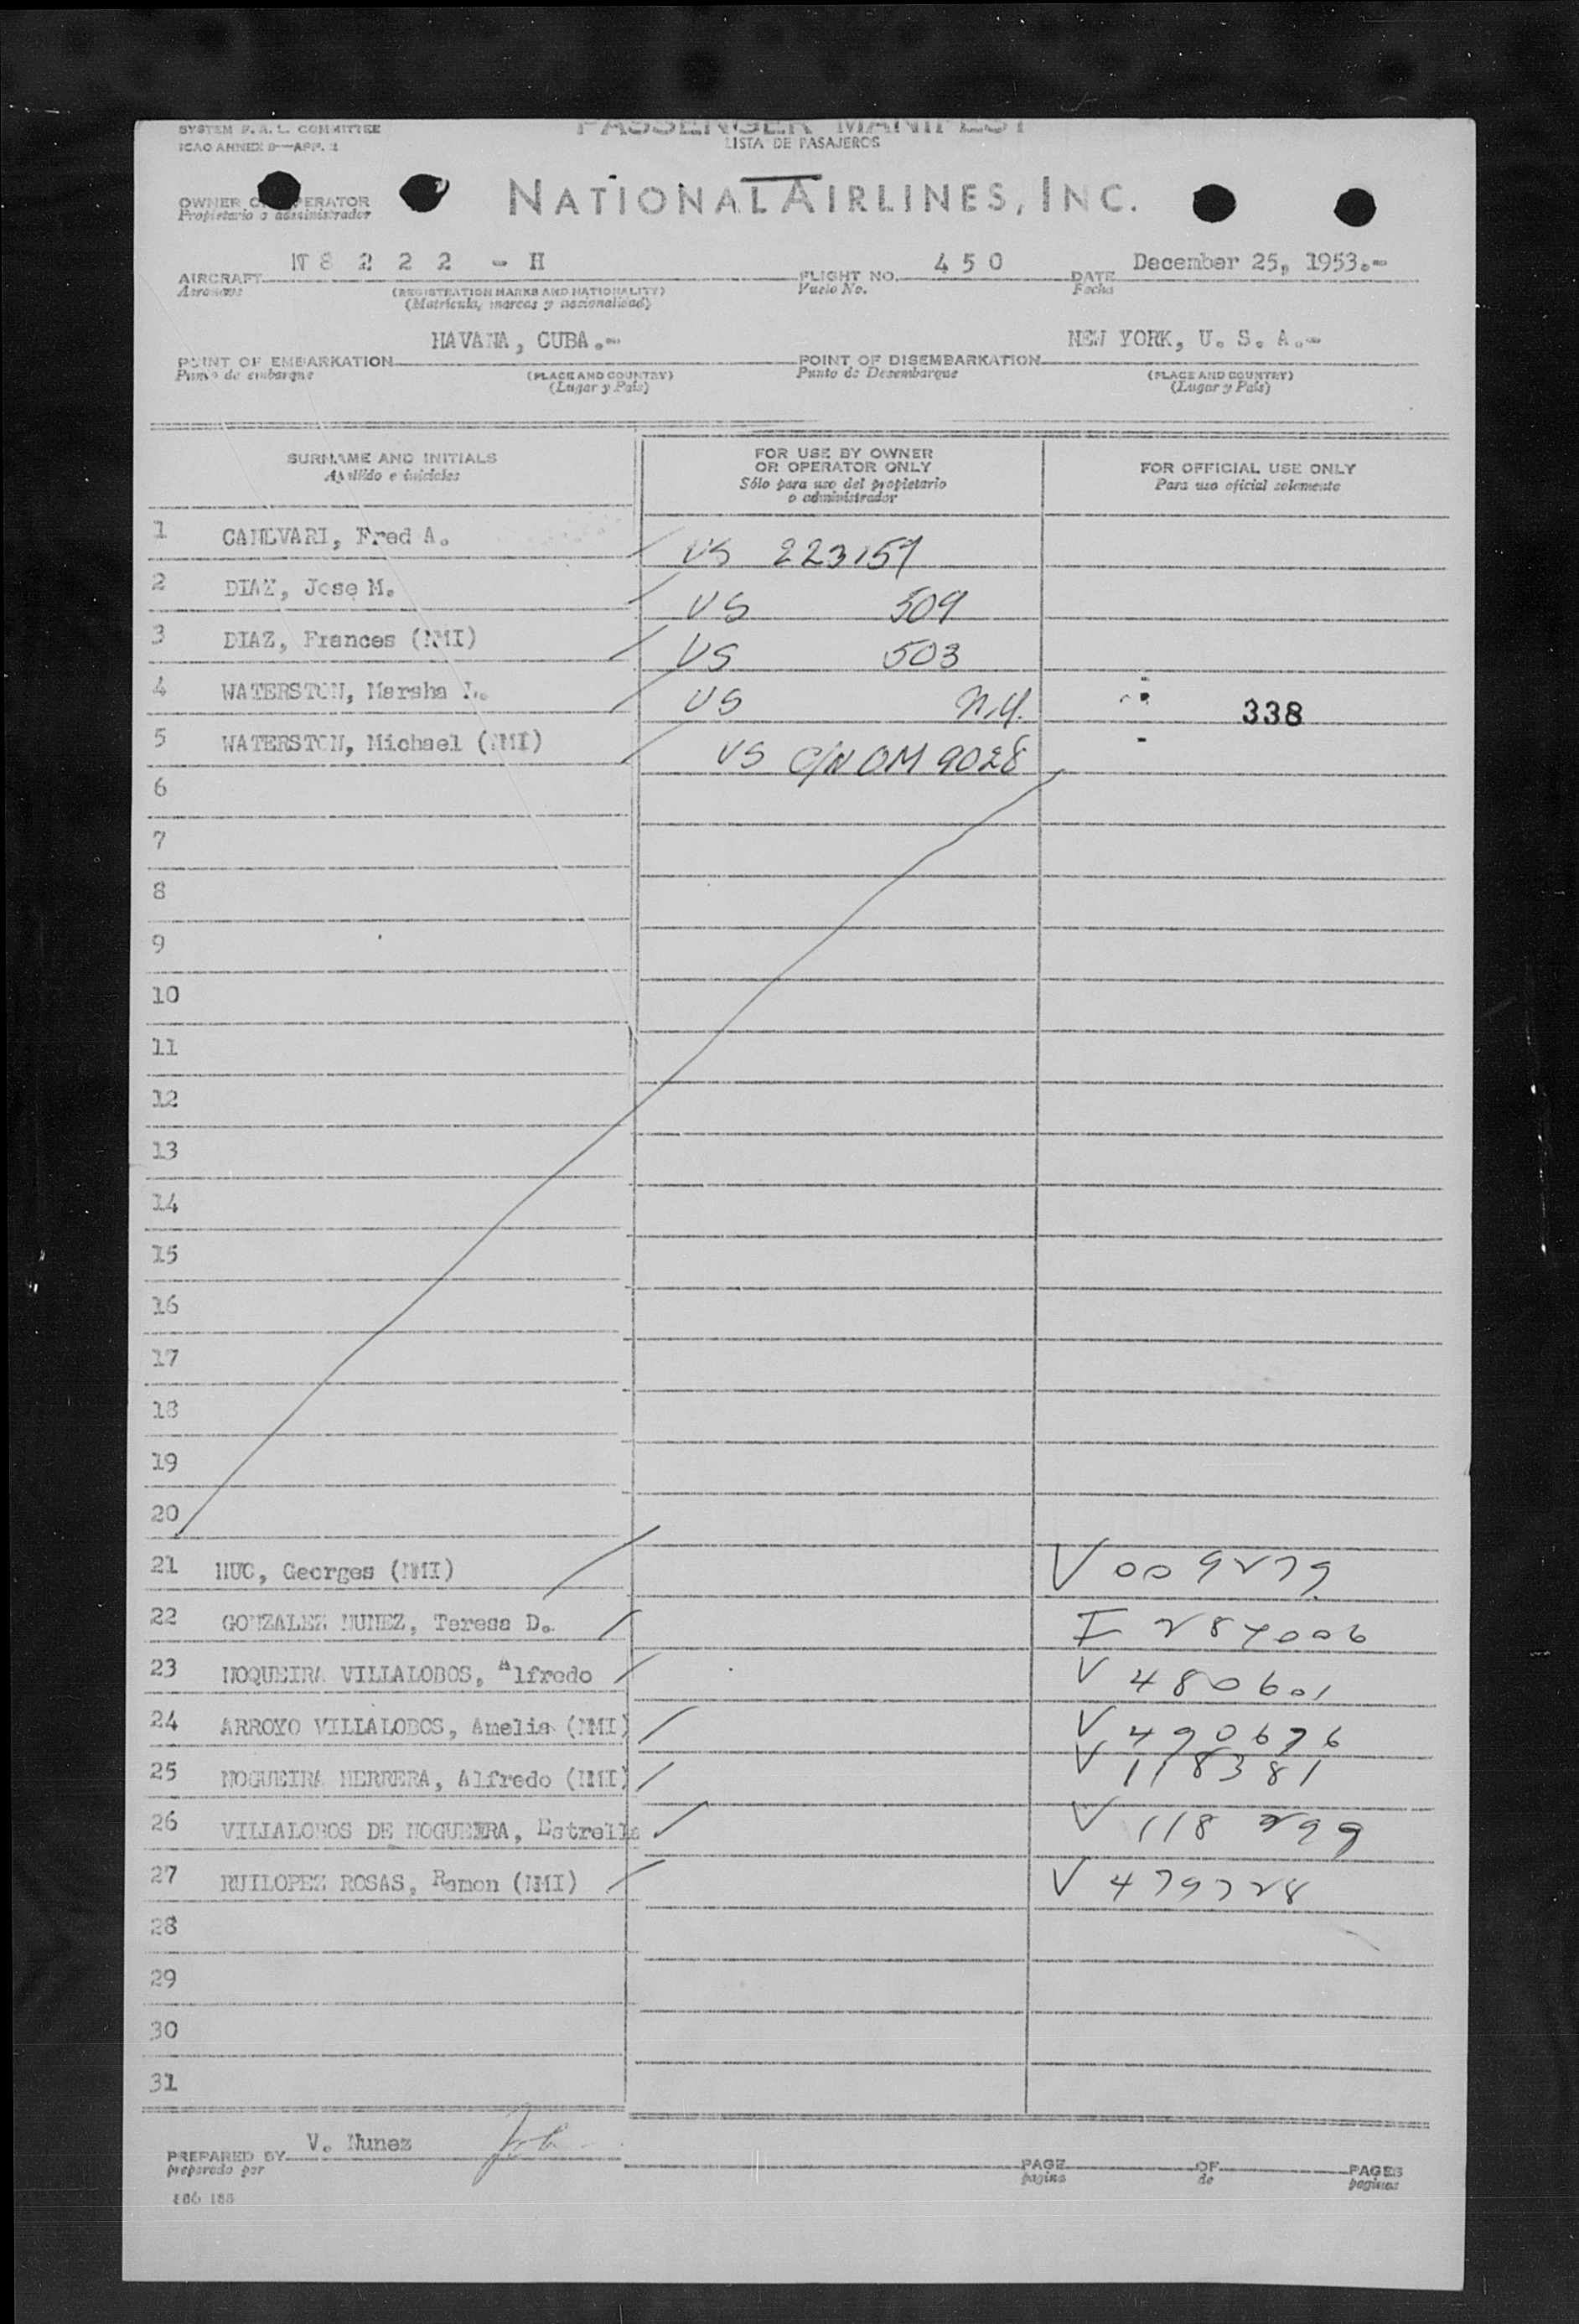 SYSTEM F. A. L. COMMITTEE
ICAO ANNEX 9—APP. 2
PASSENGER MANIFEST
LISTA DE PASAJEROS
OWNER OR OPERATOR
Propietario o administrador
NATIONAL AIRLINES, INC.
AIRCRAFT N 8 2 2 2 - H
Aeronave
(REGISTRATION MARKS AND NATIONALITY)
(Matrícula, marcas y nacionalidad)
FLIGHT NO. 4 5 0
Vuelo No.
DATE December 25, 1953.-
Fecha
POINT OF EMBARKATION HAVANA, CUBA.-
Punto de embarque
(PLACE AND COUNTRY)
(Lugar y País)
POINT OF DISEMBARKATION NEW YORK, U. S. A.-
Punto de Desembarque
(PLACE AND COUNTRY)
(Lugar y País)
SURNAME AND INITIALS
Apellido e iniciales
FOR USE BY OWNER
OR OPERATOR ONLY
Sólo para uso del propietario
o administrador
FOR OFFICIAL USE ONLY
Para uso oficial solamente
1 CANEVARI, Fred A. US 223157
2 DIAZ, Jose M. US 509
3 DIAZ, Frances (NMI) US 503
4 WATERSTON, Marsha L. US N.Y. 338
5 WATERSTON, Michael (NMI) US C/N OM 9028
6
7
8
9
10
11
12
13
14
15
16
17
18
19
20
21 HUC, Georges (NMI) V 009279
22 GONZALEZ NUNEZ, Teresa D. I 287006
23 NOQUEIRA VILLALOBOS, Alfredo V 480601
24 ARROYO VILLALOBOS, Amelia (NMI) V 490676
25 NOGUEIRA HERRERA, Alfredo (NMI) V 118381
26 VILLALOBOS DE NOGUEIRA, Estrella V 118 299
27 RUILOPEZ ROSAS, Ramon (NMI) V 479728
28
29
30
31
PREPARED BY V. Nunez
preparado por
PAGE OF PAGES
pagina de paginas